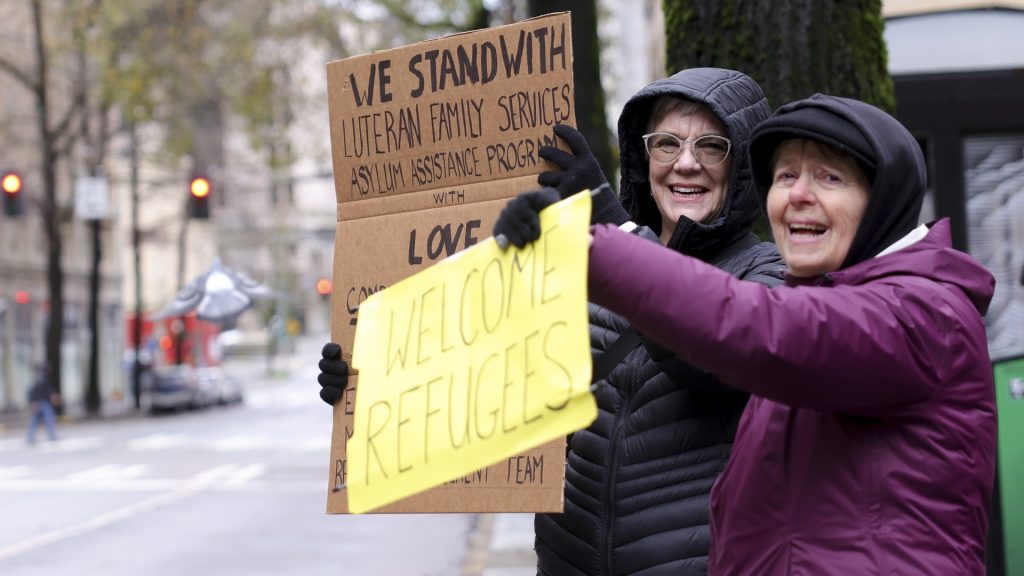 WE STAND WITH
LUTERAN FAMILY SERVICES
ASYLUM ASSISTANCE PROGRAM
WITH
LOVE
WELCOME
REFUGEES
TEAM